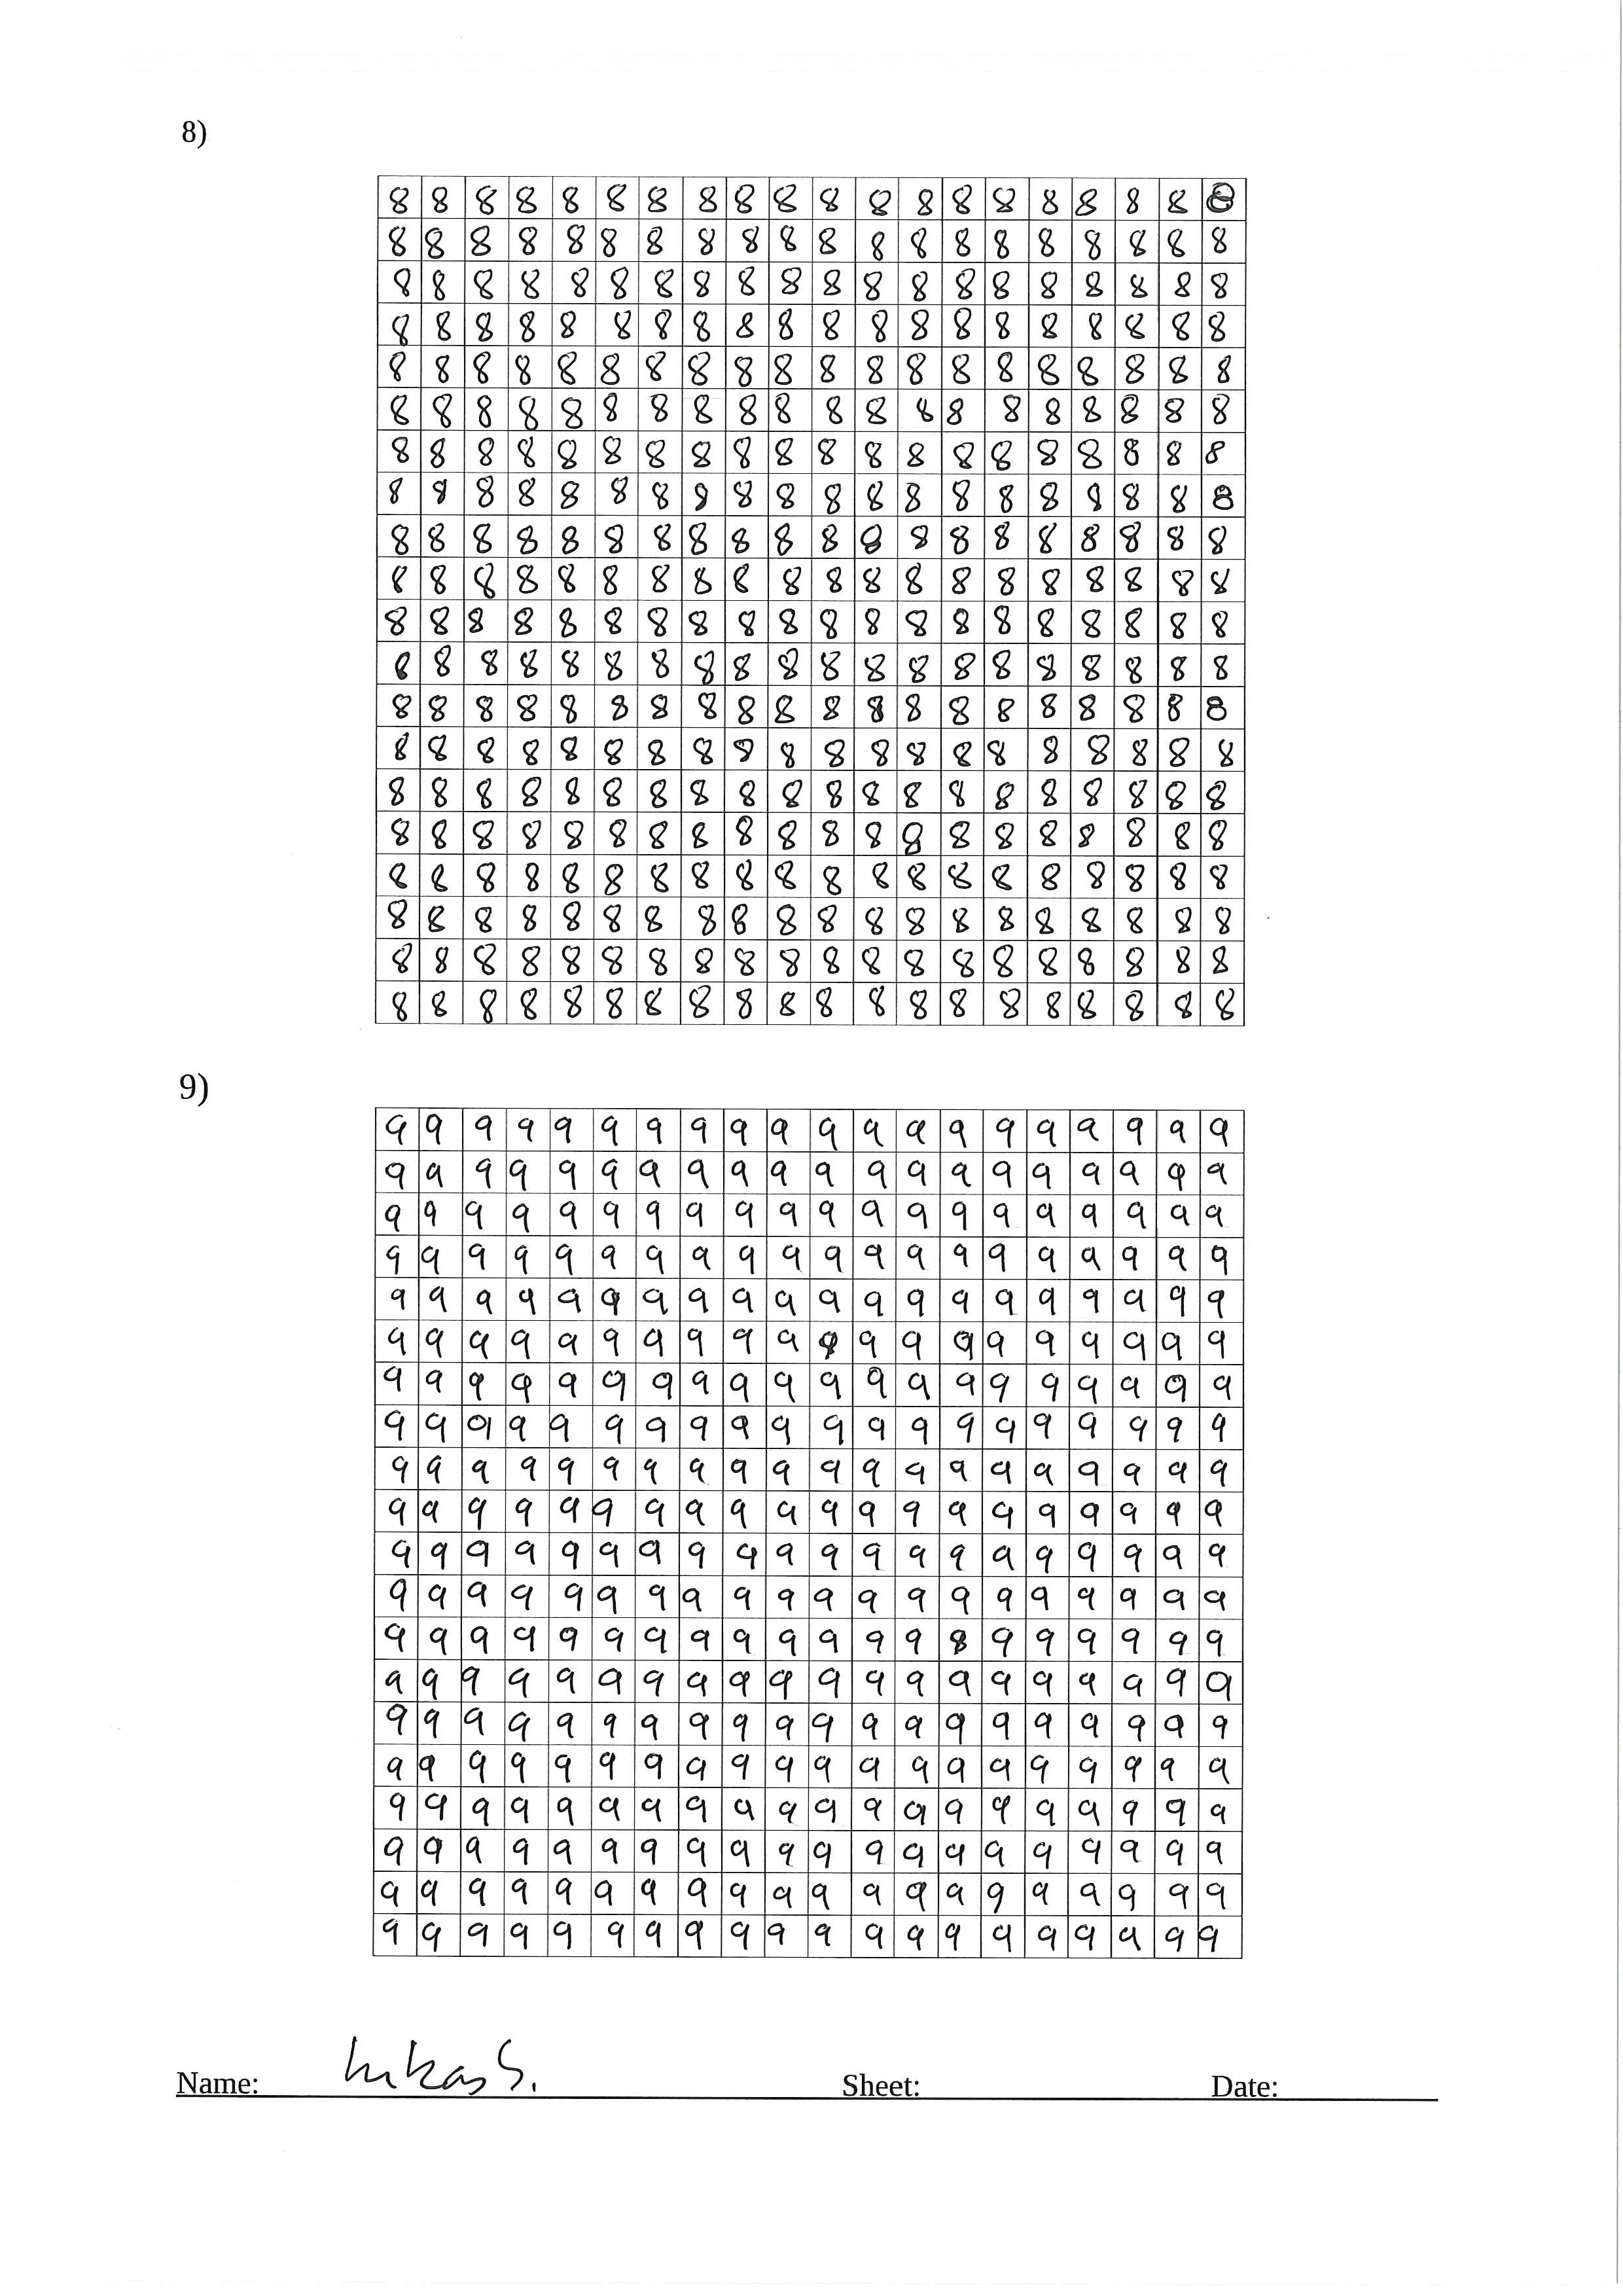 8)
8 8 8 8 8 8 8 8 8 8 8 8 8 8 8 8 8 8 8 8
8 8 8 8 8 8 8 8 8 8 8 8 8 8 8 8 8 8 8 8
8 8 8 8 8 8 8 8 8 8 8 8 8 8 8 8 8 8 8 8
8 8 8 8 8 8 8 8 8 8 8 8 8 8 8 8 8 8 8 8
8 8 8 8 8 8 8 8 8 8 8 8 8 8 8 8 8 8 8 8
8 8 8 8 8 8 8 8 8 8 8 8 8 8 8 8 8 8 8 8
8 8 8 8 8 8 8 8 8 8 8 8 8 8 8 8 8 8 8 8
8 8 8 8 8 8 8 8 8 8 8 8 8 8 8 8 8 8 8 8
8 8 8 8 8 8 8 8 8 8 8 8 8 8 8 8 8 8 8 8
8 8 8 8 8 8 8 8 8 8 8 8 8 8 8 8 8 8 8 8
8 8 8 8 8 8 8 8 8 8 8 8 8 8 8 8 8 8 8 8
8 8 8 8 8 8 8 8 8 8 8 8 8 8 8 8 8 8 8 8
8 8 8 8 8 8 8 8 8 8 8 8 8 8 8 8 8 8 8 8
8 8 8 8 8 8 8 8 8 8 8 8 8 8 8 8 8 8 8 8
8 8 8 8 8 8 8 8 8 8 8 8 8 8 8 8 8 8 8 8
8 8 8 8 8 8 8 8 8 8 8 8 8 8 8 8 8 8 8 8
8 8 8 8 8 8 8 8 8 8 8 8 8 8 8 8 8 8 8 8
8 8 8 8 8 8 8 8 8 8 8 8 8 8 8 8 8 8 8 8
8 8 8 8 8 8 8 8 8 8 8 8 8 8 8 8 8 8 8 8
8 8 8 8 8 8 8 8 8 8 8 8 8 8 8 8 8 8 8 8
9)
9 9 9 9 9 9 9 9 9 9 9 9 9 9 9 9 9 9 9 9
9 9 9 9 9 9 9 9 9 9 9 9 9 9 9 9 9 9 9 9
9 9 9 9 9 9 9 9 9 9 9 9 9 9 9 9 9 9 9 9
9 9 9 9 9 9 9 9 9 9 9 9 9 9 9 9 9 9 9 9
9 9 9 9 9 9 9 9 9 9 9 9 9 9 9 9 9 9 9 9
9 9 9 9 9 9 9 9 9 9 9 9 9 9 9 9 9 9 9 9
9 9 9 9 9 9 9 9 9 9 9 9 9 9 9 9 9 9 9 9
9 9 9 9 9 9 9 9 9 9 9 9 9 9 9 9 9 9 9 9
9 9 9 9 9 9 9 9 9 9 9 9 9 9 9 9 9 9 9 9
9 9 9 9 9 9 9 9 9 9 9 9 9 9 9 9 9 9 9 9
9 9 9 9 9 9 9 9 9 9 9 9 9 9 9 9 9 9 9 9
9 9 9 9 9 9 9 9 9 9 9 9 9 9 9 9 9 9 9 9
9 9 9 9 9 9 9 9 9 9 9 9 9 8 9 9 9 9 9 9
9 9 9 9 9 9 9 9 9 9 9 9 9 9 9 9 9 9 9 9
9 9 9 9 9 9 9 9 9 9 9 9 9 9 9 9 9 9 9 9
9 9 9 9 9 9 9 9 9 9 9 9 9 9 9 9 9 9 9 9
9 9 9 9 9 9 9 9 9 9 9 9 9 9 9 9 9 9 9 9
9 9 9 9 9 9 9 9 9 9 9 9 9 9 9 9 9 9 9 9
9 9 9 9 9 9 9 9 9 9 9 9 9 9 9 9 9 9 9 9
9 9 9 9 9 9 9 9 9 9 9 9 9 9 9 9 9 9 9 9
Name: Lukas S. Sheet: Date: